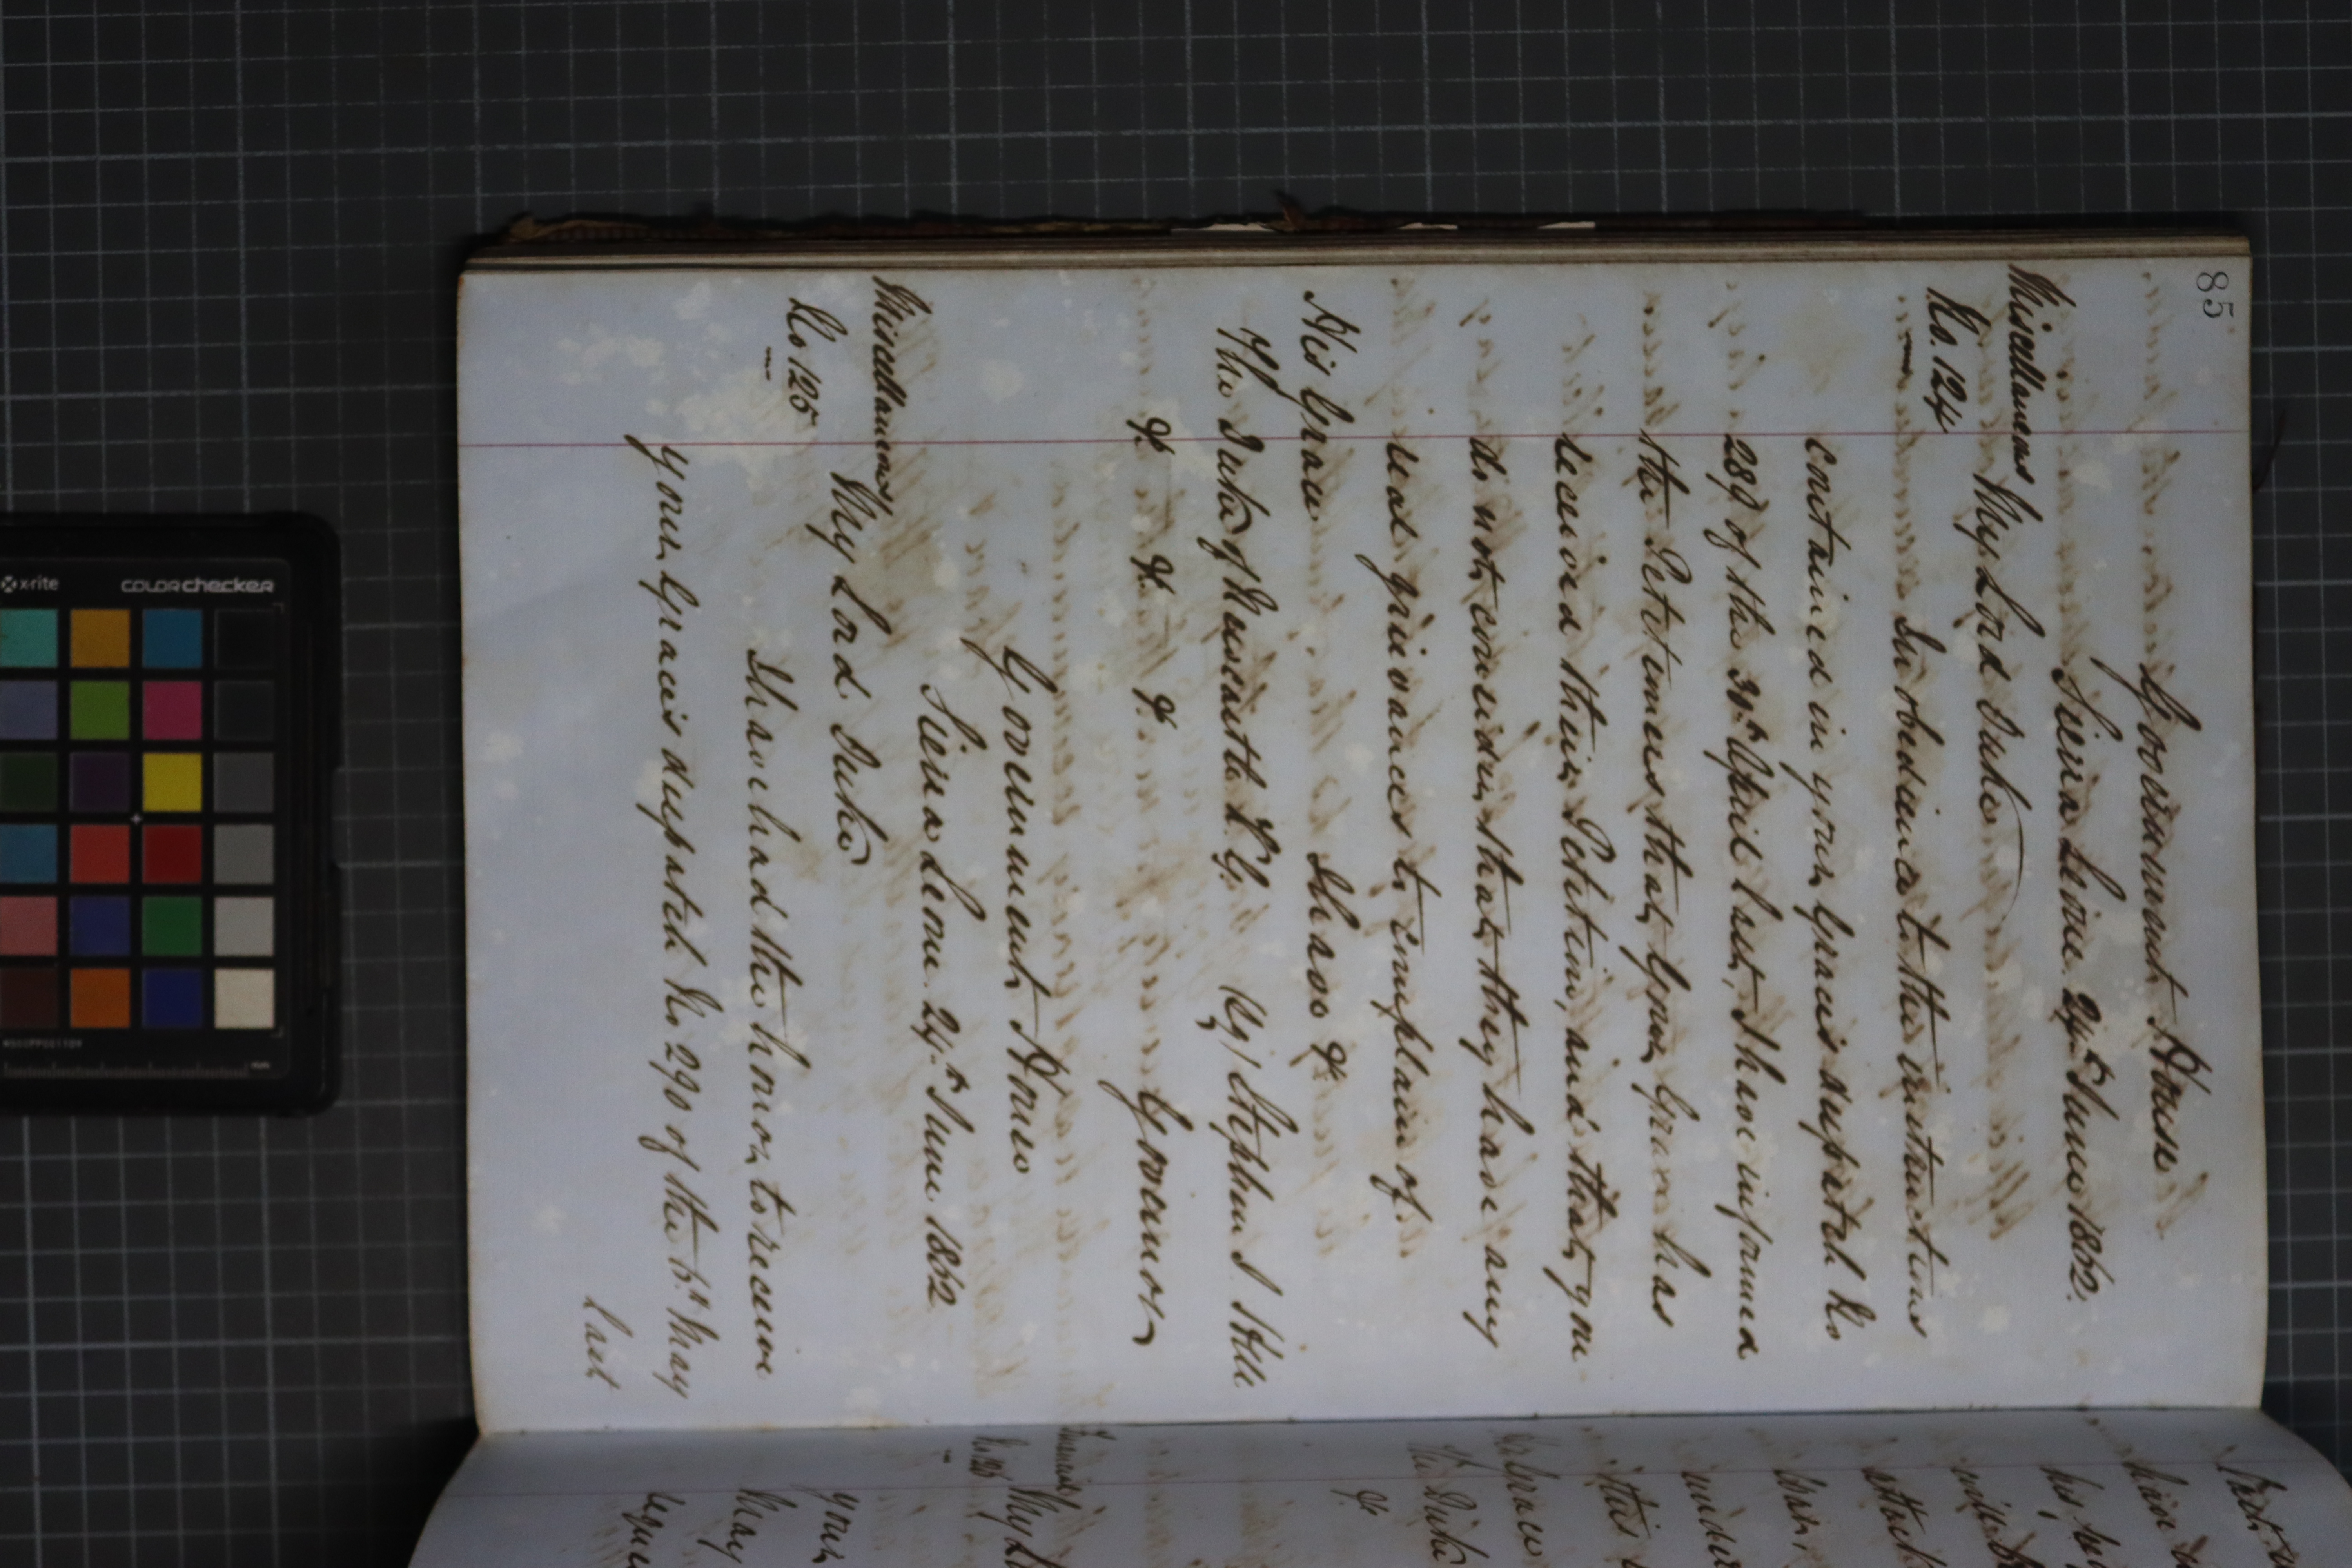 85
Government House
Sierra Leone. 24th June 1862.
Miscellaneous My Lord Duke
No. 124
In obedience to the instructions
contained in your Grace's despatch No
289 of the 30th April last, I have informed
the Petitioners that Your Grace has
received their Petition, and that you
do not consider that they have any
real grievances to complain of.
His Grace I have &
The Duke of Newcastle K.G. (Sg) Stephen J Hill
& & & Governor
Government House
Sierra Leone. 24th June 1862
Miscellaneous My Lord Duke
No 125
I have had the honor to receive
your Grace's despatch No 290 of the 6th May
last
My L
your
May
The Duke
&
x-rite
colorchecker